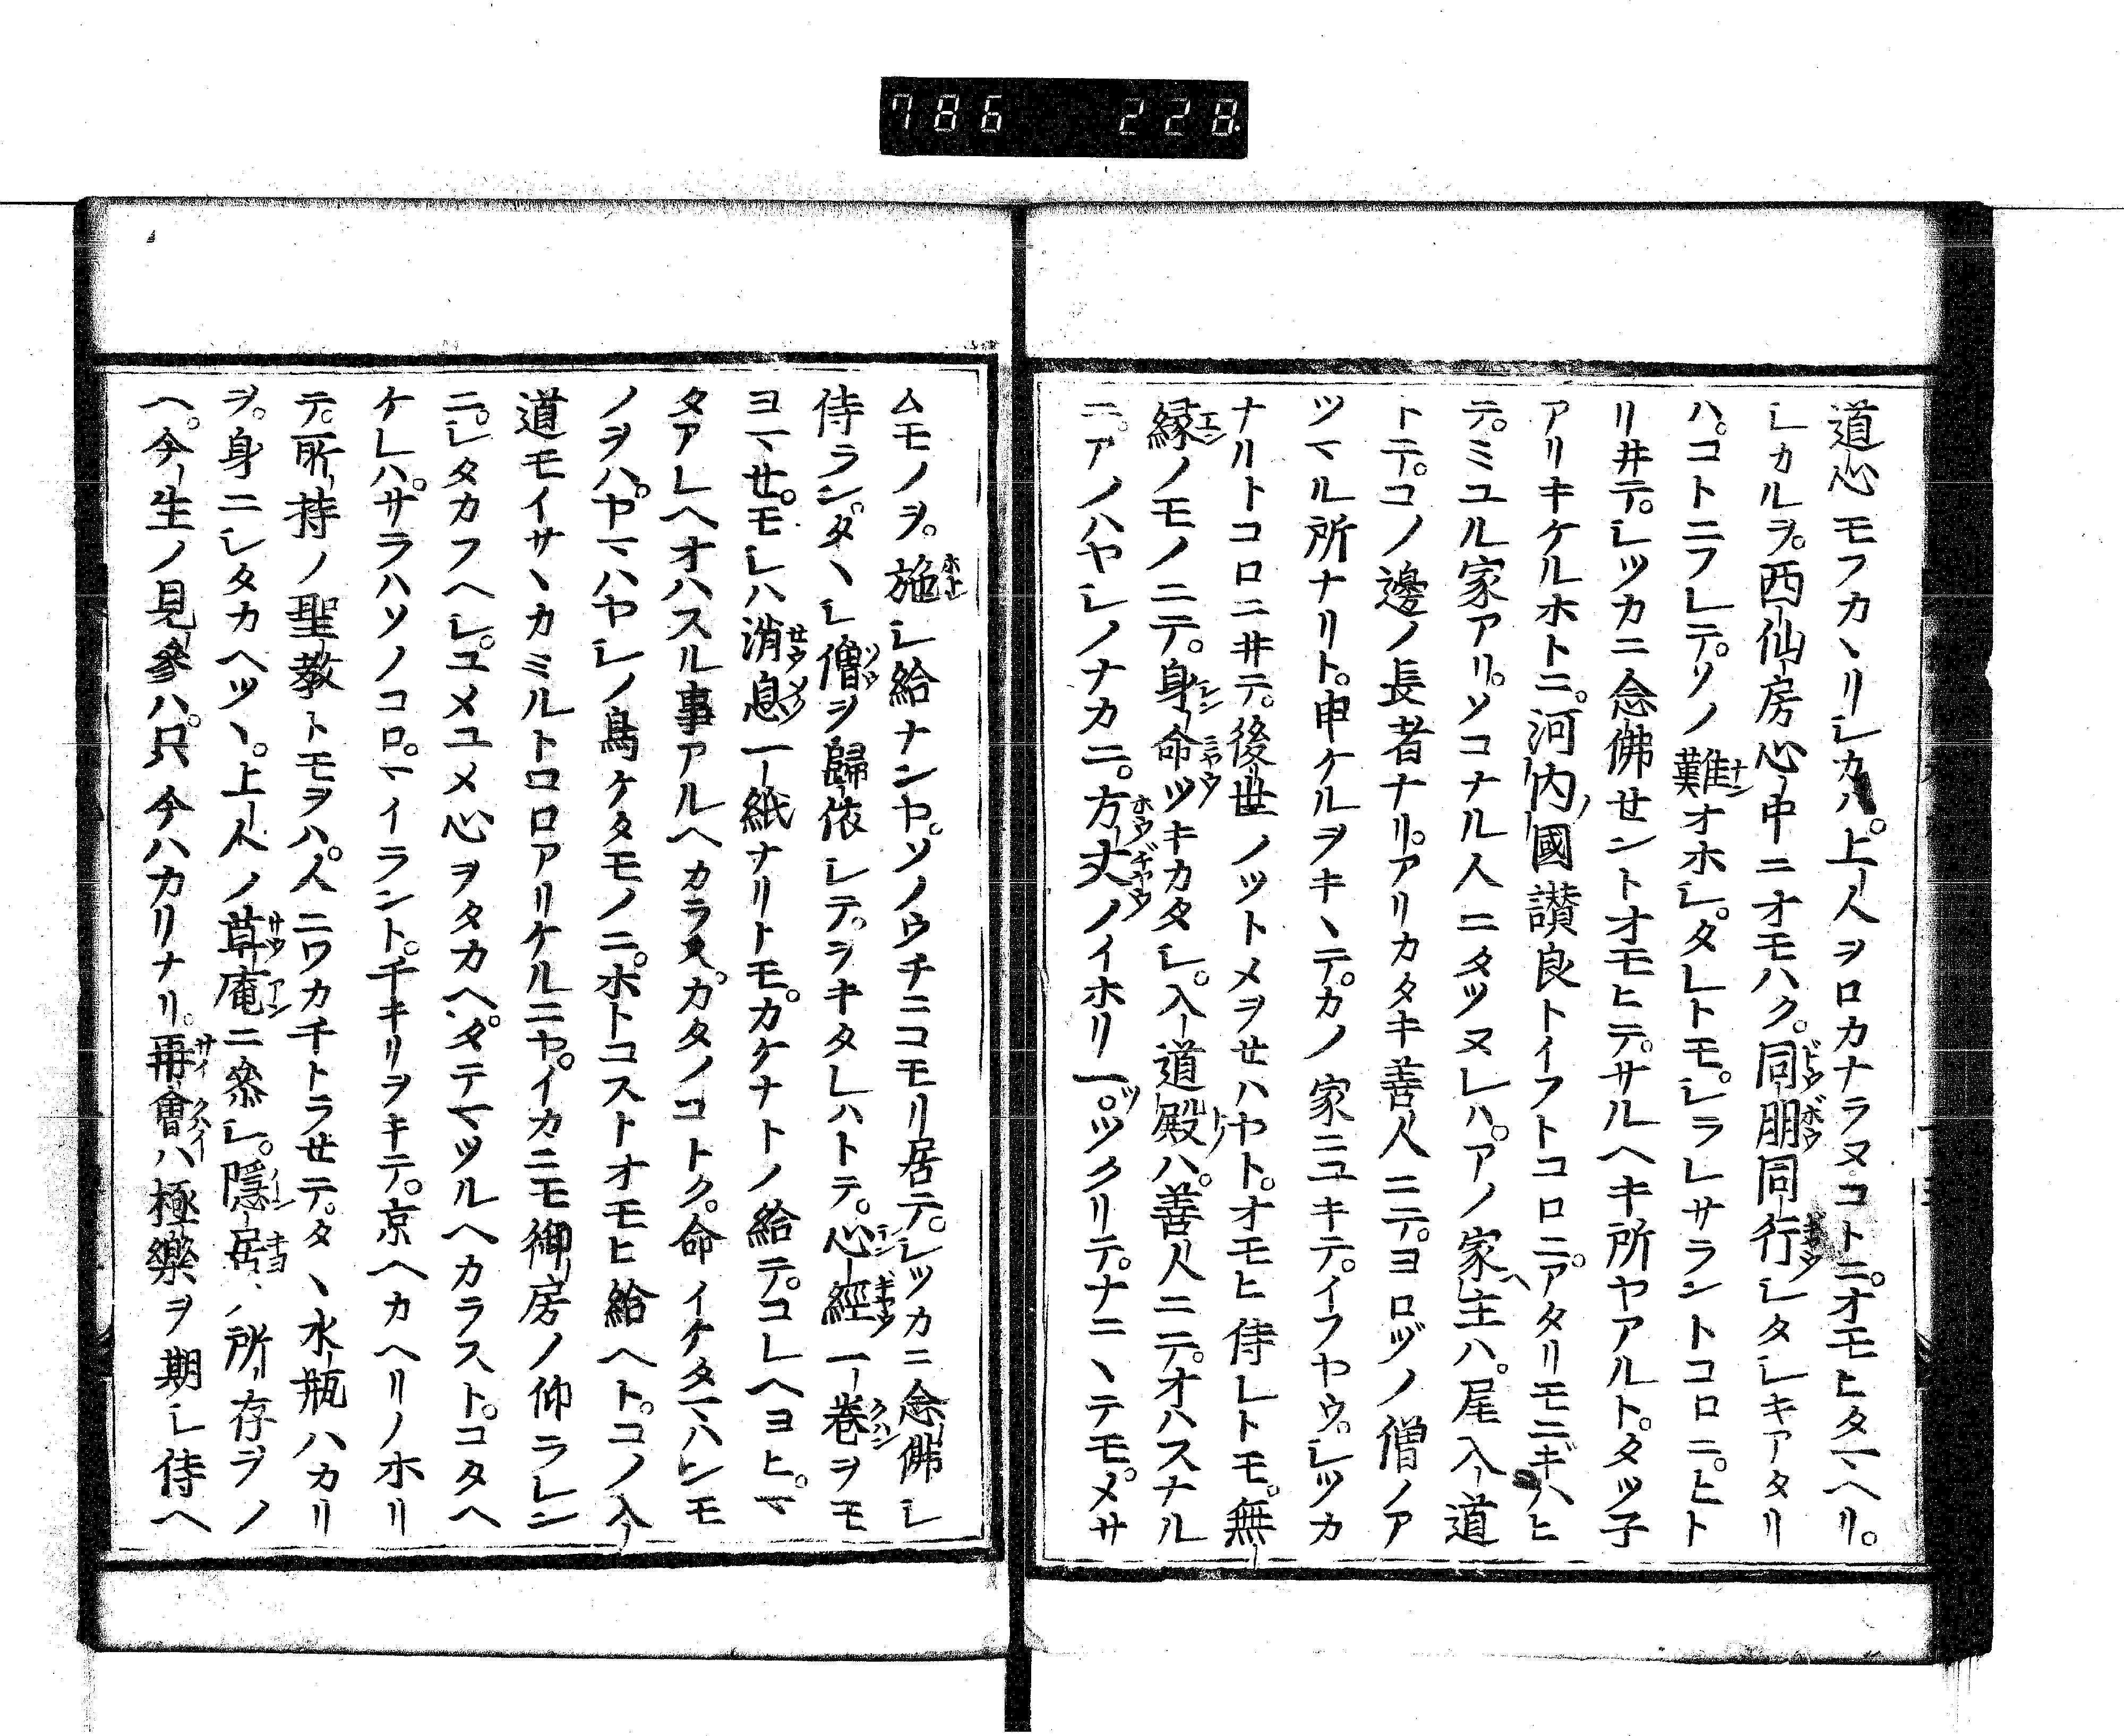 786 228
道心モフカヽリシカハ。上人ヲロカナラヌコトニ。オモヒタマヘリ。
シカルヲ。西仙房心中ニオモハク。同朋同行シタシキアタリ
ハ。コトニフレテ。ソノ難オホシ。タレトモ。シラレサラントコロニ。ヒト
リ井テ。シツカニ念佛せントオモヒテ。サルヘキ所ヤアルト。タツ子
アリキケルホトニ。河内國讃良トイフトコロニ。アタリモニギハヒ
テ。ミユル家アリ。ソコナル人ニタツヌレハ。アノ家主ハ。尾入道
トテ。コノ邊ノ長者ナリ。アリカタキ善人ニテ。ヨロヅノ僧ノア
ツマル所ナリト。申ケルヲキヽテ。カノ家ニユキテ。イフヤウ。シツカ
ナルトコロニ井テ。後世ノツトメヲせハヤト。オモヒ侍レトモ。無
縁ノモノニテ。身命ツキカタシ。入道殿ハ。善人ニテ。オハスナル
ニ。アノハヤシノナカニ。方丈ノイホリ一。ツクリテ。ナニヽテモ。メサ
ムモノヲ。施シ給ナンヤ。ソノウチニコモリ居テ。シツカニ念佛シ
侍ラン。タヽシ僧ヲ歸依シテ。ヲキタレハトテ。心經一巻ヲモ
ヨマせ。モシハ消息一紙ナリトモ。カケナトノ給テ。コレヘヨヒ。マ
タアレヘオハスル事アルヘカラス。カタノコトク。命イケタマハンモ
ノヲハ。ヤマハヤシノ鳥ケタモノニ。ホトコストオモヒ給ヘト。コノ入
道モイサヽカミルトコロアリケルニヤ。イカニモ御房ノ仰ラレン
ニ。シタカフヘシ。ユメユメ心ヲタカヘ。タテマツルヘカラスト。コタヘ
ケレハ。サラハソノコロ。マイラント。チキリヲキテ。京ヘカヘリノホリ
テ。所持ノ聖教トモヲハ。人ニワカチトラせテ。タヽ水瓶ハカリ
ヲ。身ニシタカヘツヽ。上人ノ草庵ニ參シ。隱居ノ所存ヲノ
ヘ。今生ノ見參ハ。只今ハカリナリ。再會ハ極樂ヲ期シ侍ヘ